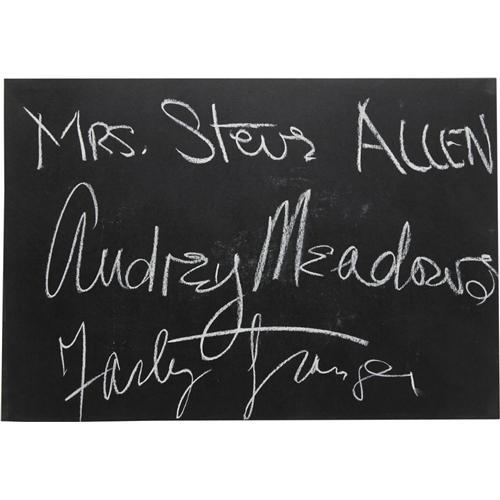 MRS. Steve ALLEN
Audrey Meadows
Farley Granger